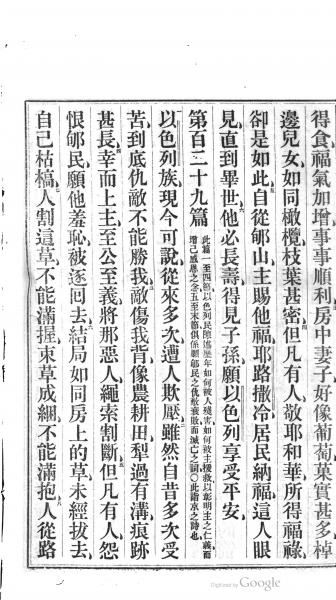 得食福氣加增事事順利房中妻子好像葡萄菓實甚多棹
邊兒女如同橄欖枝葉甚密但凡有人敬耶和華所得福祿
卻是如此自從郇山主賜他福耶路撒冷居民納福這人眼
見直到畢世他必長壽得見子孫願以色列享受平安
第百二十九篇
此篇一至四節以色列民願述歷年如何被人殘害如何被主援救以彰明主之仁義而
增己感恩之念五至末節俱係願郇民之仇敵衰敗而滅亡之詞〇此詣京之詩也
以色列族現今可說從來多次遭人欺壓雖然自昔多次受
苦到底仇敵不能勝我敵傷我背像農耕田犁過有溝痕跡
甚長幸而上主至公至義將那惡人繩索割斷但凡有人怨
恨郇民願他羞恥被逐回去結局如同房上的草未經拔去
自己枯槁人割這草不能滿握束草成綑不能滿抱人從路
Digitized by Google